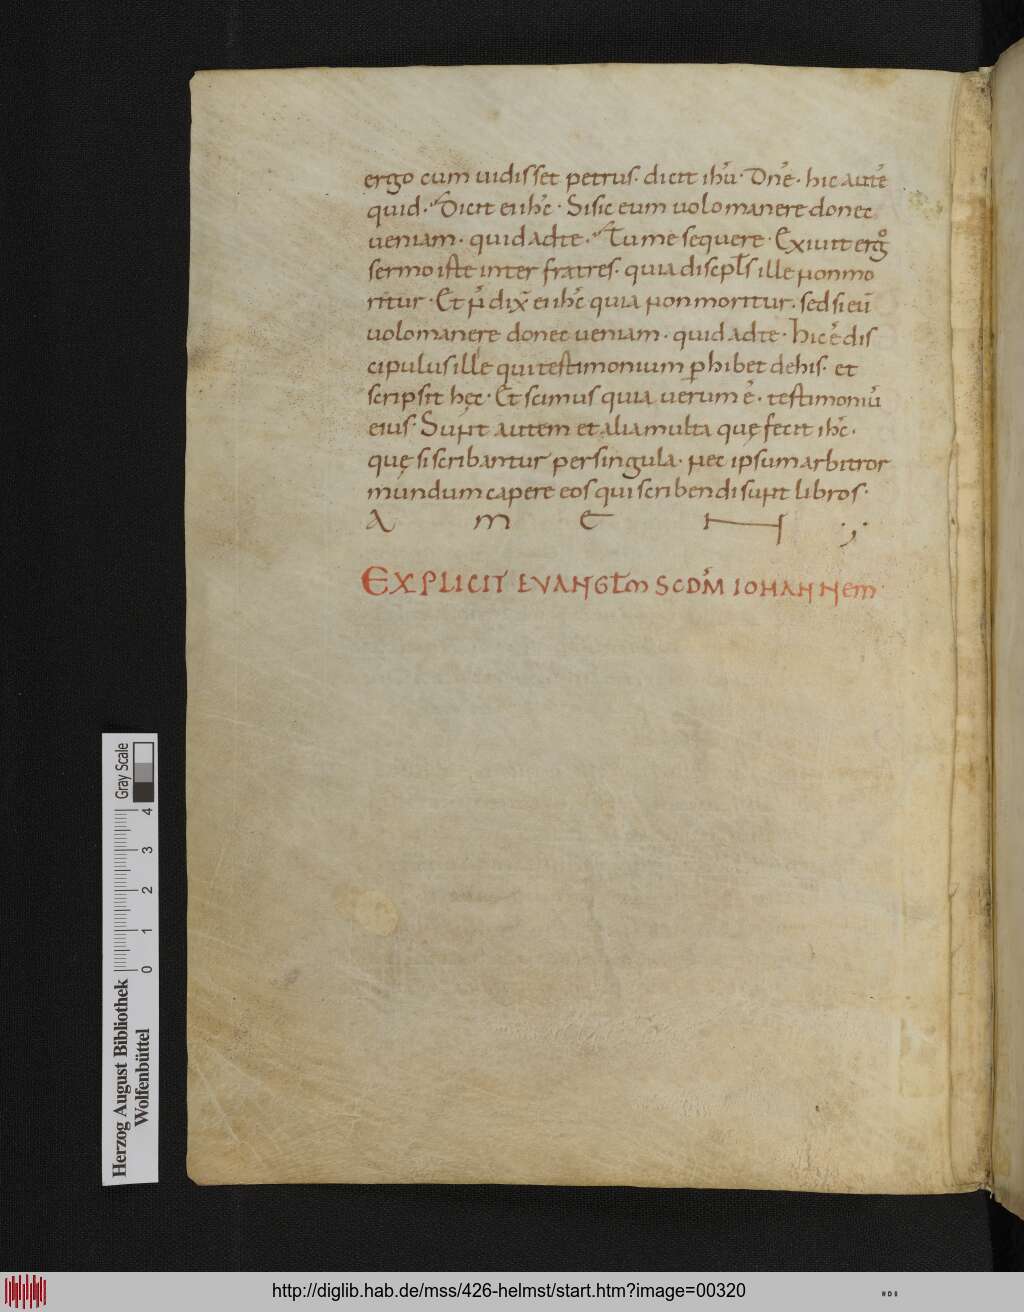 ergo cum uidisset petrus. dicit ihū. Dn̄e. hic autē
quid. Dicit ei ihc̄. Si sic eum uolo manere donec
ueniam. quid ad te. Tu me sequere. Exiuit ergo
sermo iste inter fratres. quia discipl̄s ille non mo
ritur. Et n̄ dix̄ ei ihc̄ quia non moritur. sed si eū
uolo manere donec ueniam. quid ad te. Hic ē dis
cipulus ille qui testimonium ꝑhibet de his. et
scripsit hęc. Et scimus quia uerum ē. testimoniū
eius. Sunt autem et alia multa quę fecit ihc̄.
quę si scribantur per singula. nec ipsum arbitror
mundum capere eos qui scribendi sunt libros.
A m E N
EXPLICIT EVANGL̄m SCDM̄ IOHANNEm
Herzog August Bibliothek
Wolfenbüttel
0 1 2 3 4
Gray Scale
http://diglib.hab.de/mss/426-helmst/start.htm?image=00320